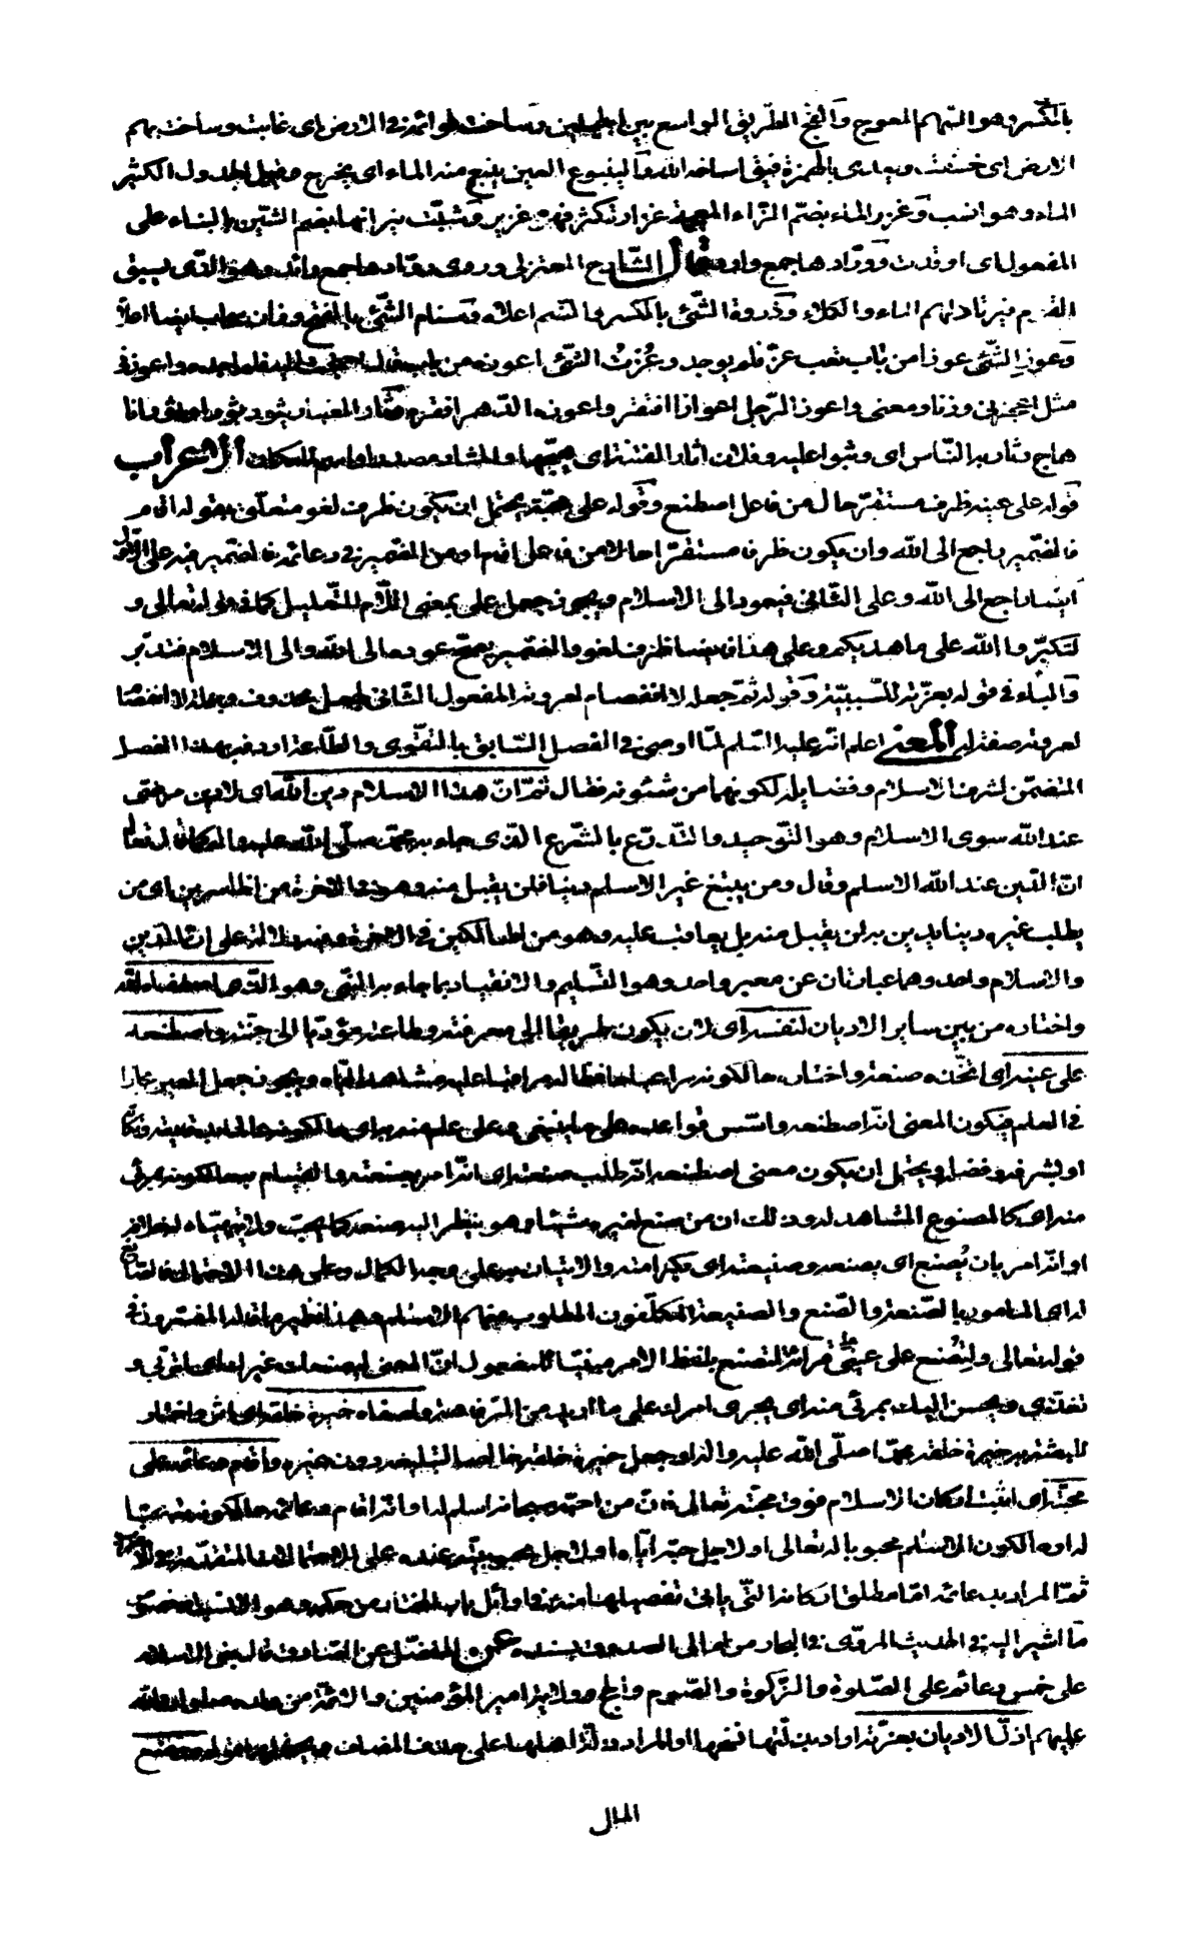 بالكسر وهو السّهم المعوج والفجّ الطّريق الواسع بين الجبلين وساخت قوائمه فى الارض اى غابت وساخت بهم
الارض اى خسفت ويعدى بالهمزة فيق اساخه الله والينبوع العين ينبع منه الماء اى يخرج وقيل الجدول الكثير
الماء وهو انسب وغزر الماء بضمّ الزّاء المعجمة غزارة كثر فهو غزير وشبّت نيرانها بضم الشّين بالبناء على
المفعول اى اوقدت وورّادها جمع وارد قال الشّارح المعتزلى وروى روّادها جمع رائد وهو الّذى يسبق
القوم فيرتاد لهم الماء والكلاء وذروة الشّئ بالكسر والضم اعلاه وسنام الشّئ بالفتح وفان
وعوز الشّئ عوزا من باب تعب عزّ فلم يوجد وعُزت الشّئ اعوزه من باب قال احتجت اليه فلم اجده واعوزنى
مثل اعجزنى وزنا ومعنى واعوز الرّجل اعوازا افتقر واعوزه الدّهر افقره وثار الغبار يثور
هاج وثار به النّاس اى وثبوا عليه وفلان اثار الفتنة اى هيّجها والمثار مصدر او اسم للمكان الاعراب
قوله على عينه ظرف مستقرّ حال من فاعل اصطنع وقوله على محبّته يحتمل ان يكون ظرف لغو متعلّق بقوله اقام
فالضّمير راجع الى الله وان يكون ظرف مستقرّا حالا من فاعل اقام او من الضّمير فى دعائمه فالضّمير فيه على الاوّل
ايضا راجع الى الله وعلى الثّانى فيعود الى الاسلام ويجوز جعل على بمعنى اللّام للتّعليل كما فى قوله تعالى و
لتكبّروا الله على ما هديكم وعلى هذا فايضا ظرف لغو والضّمير يصحّ عوده الى الله والى الاسلام فتدبّر
والباء فى قوله بعزّته للسّببيّة وقوله ثمّ جعله لا انفصام لعروته المفعول الثّانى لجعل محذوف
لعروته صفة له المعنى اعلم انّه عليه السّلم لمّا اوصى فى الفصل السّابق بالتّقوى والطّاعة اردفه بهذا الفصل
المتضمّن لشرف الاسلام وفضايله لكونهما من شئونه فقال ثمّ انّ هذا الاسلام دين الله اى لا دين مرضى
عند الله سوى الاسلام وهو التّوحيد والتّدرّع بالشّرع الّذى جاء به محمّد صلّى الله عليه واله كما قال تعالى
انّ الدّين عند الله الاسلم وقال ومن يبتغ غير الاسلم دينا فلن يقبل منه وهو فى الاخرة من الخاسرين اى من
يطلب غيره دينا يدين به لن يقبل منه بل يعاقب عليه وهو من الهالكين فى الاخرة وفيه دلالة على انّ الدّين
والاسلام واحد وهما عبارتان عن معبر واحد وهو التّسليم والانقياد بما جاء به النّبى وهو الّذى اصطفاه الله
واختاره من بين ساير الاديان لنفسه اى لان يكون طريقا الى معرفته وطاعته مؤدّيا الى جنّته واصطنعه
على عينه اى اتّخذه صنعة واختاره حالكونه مراعيا حافظا له مراقبا عليه مشاهدا ايّاه ويجوز جعل العين مجازا
فى العلم فيكون المعنى انّه اصطنعه واسّس قواعده على ما ينبغى وعلى علم منه به اى حالكونه عالما
او لشرفه وفضله ويحتمل ان يكون معنى اصطنعه انّه طلب صنعته اى انّه امر بصنعته والقيام بها حالكونه بمرئى
منه اى كالمصنوع المشاهد له وذلك ان من صنع لغيره شيئا وهو ينظر اليه صنعه كما يحبّ ولا يتهيّاء له خلافه
او انّه امر بان يُصنع اى يصنعه وصنيعته اى بكرامته والاتيان به على وجه الكمال وعلى هذا الاحتمال فالصّانع
له اى المامور بالصّنعة والصّنع والصنيعة المكلّفون المطلوب منهم الاسلم وهذا نظير ما قاله المفسّرون فى
قوله تعالى ولتُصنع على عينى على قرائة لتصنع بلفظ الامر مبنيّا للمفعول انّ المعنى ليصنعك غيرك اى لتربّى و
تغذّى ويحسن اليك بمرئى منه اى يجرى امرك على ما اريد من الرّفاهة واصفاه خيرة خلقه اى اثر واختار
للبعثة به خيرة خلقه محمّدا صلّى الله عليه واله او جعل خيرة خلقه خالصا لتبليغه دون غيره واقام دعائمه على
محبّته اى اثبت اركان الاسلام فوق محبّته تعالى فانّ من احبّه سبحانه اسلم له او انّه اقام دعائمه حالكونه محبّا
له او حالكون الاسلم محبوبا له تعالى او لاجل حبّه ايّاه او لاجل محبوبيّته عنده على الاحتمالات المتقدّمة فى الاعراب
ثمّ المراد بدعائمه امّا مطلق اركانه الّتى ياتى تفصيلها منه فى اوائل باب المختار من حكمه وهو الانسب او خصوص
ما اشير اليه فى الحديث المروّى فى البحار من امالى الصدوق بسنده عن المفضّل عن الصّادق قال بنى الاسلام
على خمس دعائم على الصّلوة والزّكوة والصّوم والحج وولاية امير المؤمنين والائمّة من ولده صلوات الله
عليهم اذلّ الاديان بعزّته اراد بذلّتها نسخها او المراد ذلّة اهلها على حذف المضاف
المال